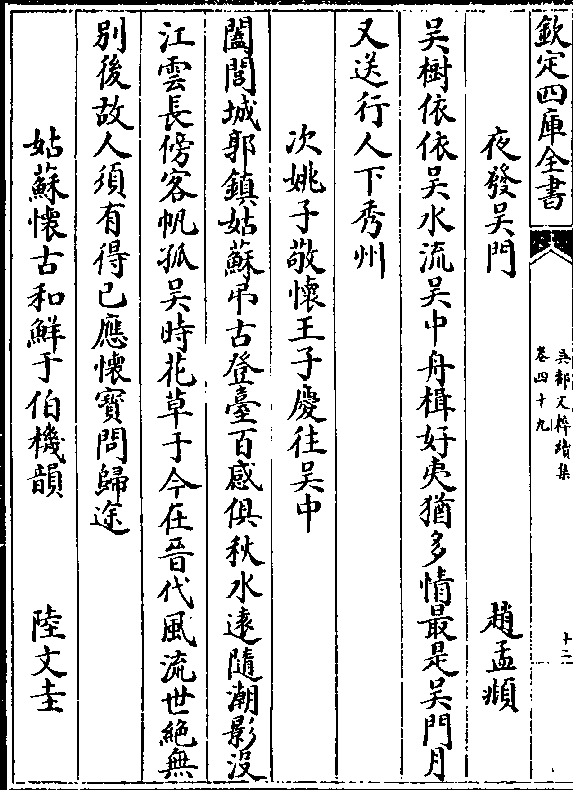 欽定四庫全書
吳都文粹續集
卷四十九
十二
夜發吳門
趙孟頫
吳樹依依吳水流吳中舟楫好夷猶多情最是吳門月
又送行人下秀州
次姚子敬懷王子慶往吳中
闔閭城郭鎮姑蘇弔古登臺百感俱秋水遠隨潮影沒
江雲長傍客帆孤吳時花草于今在晉代風流世絶無
別後故人須有得已應懷寳問歸途
姑蘇懷古和鮮于伯機韻
陸文圭